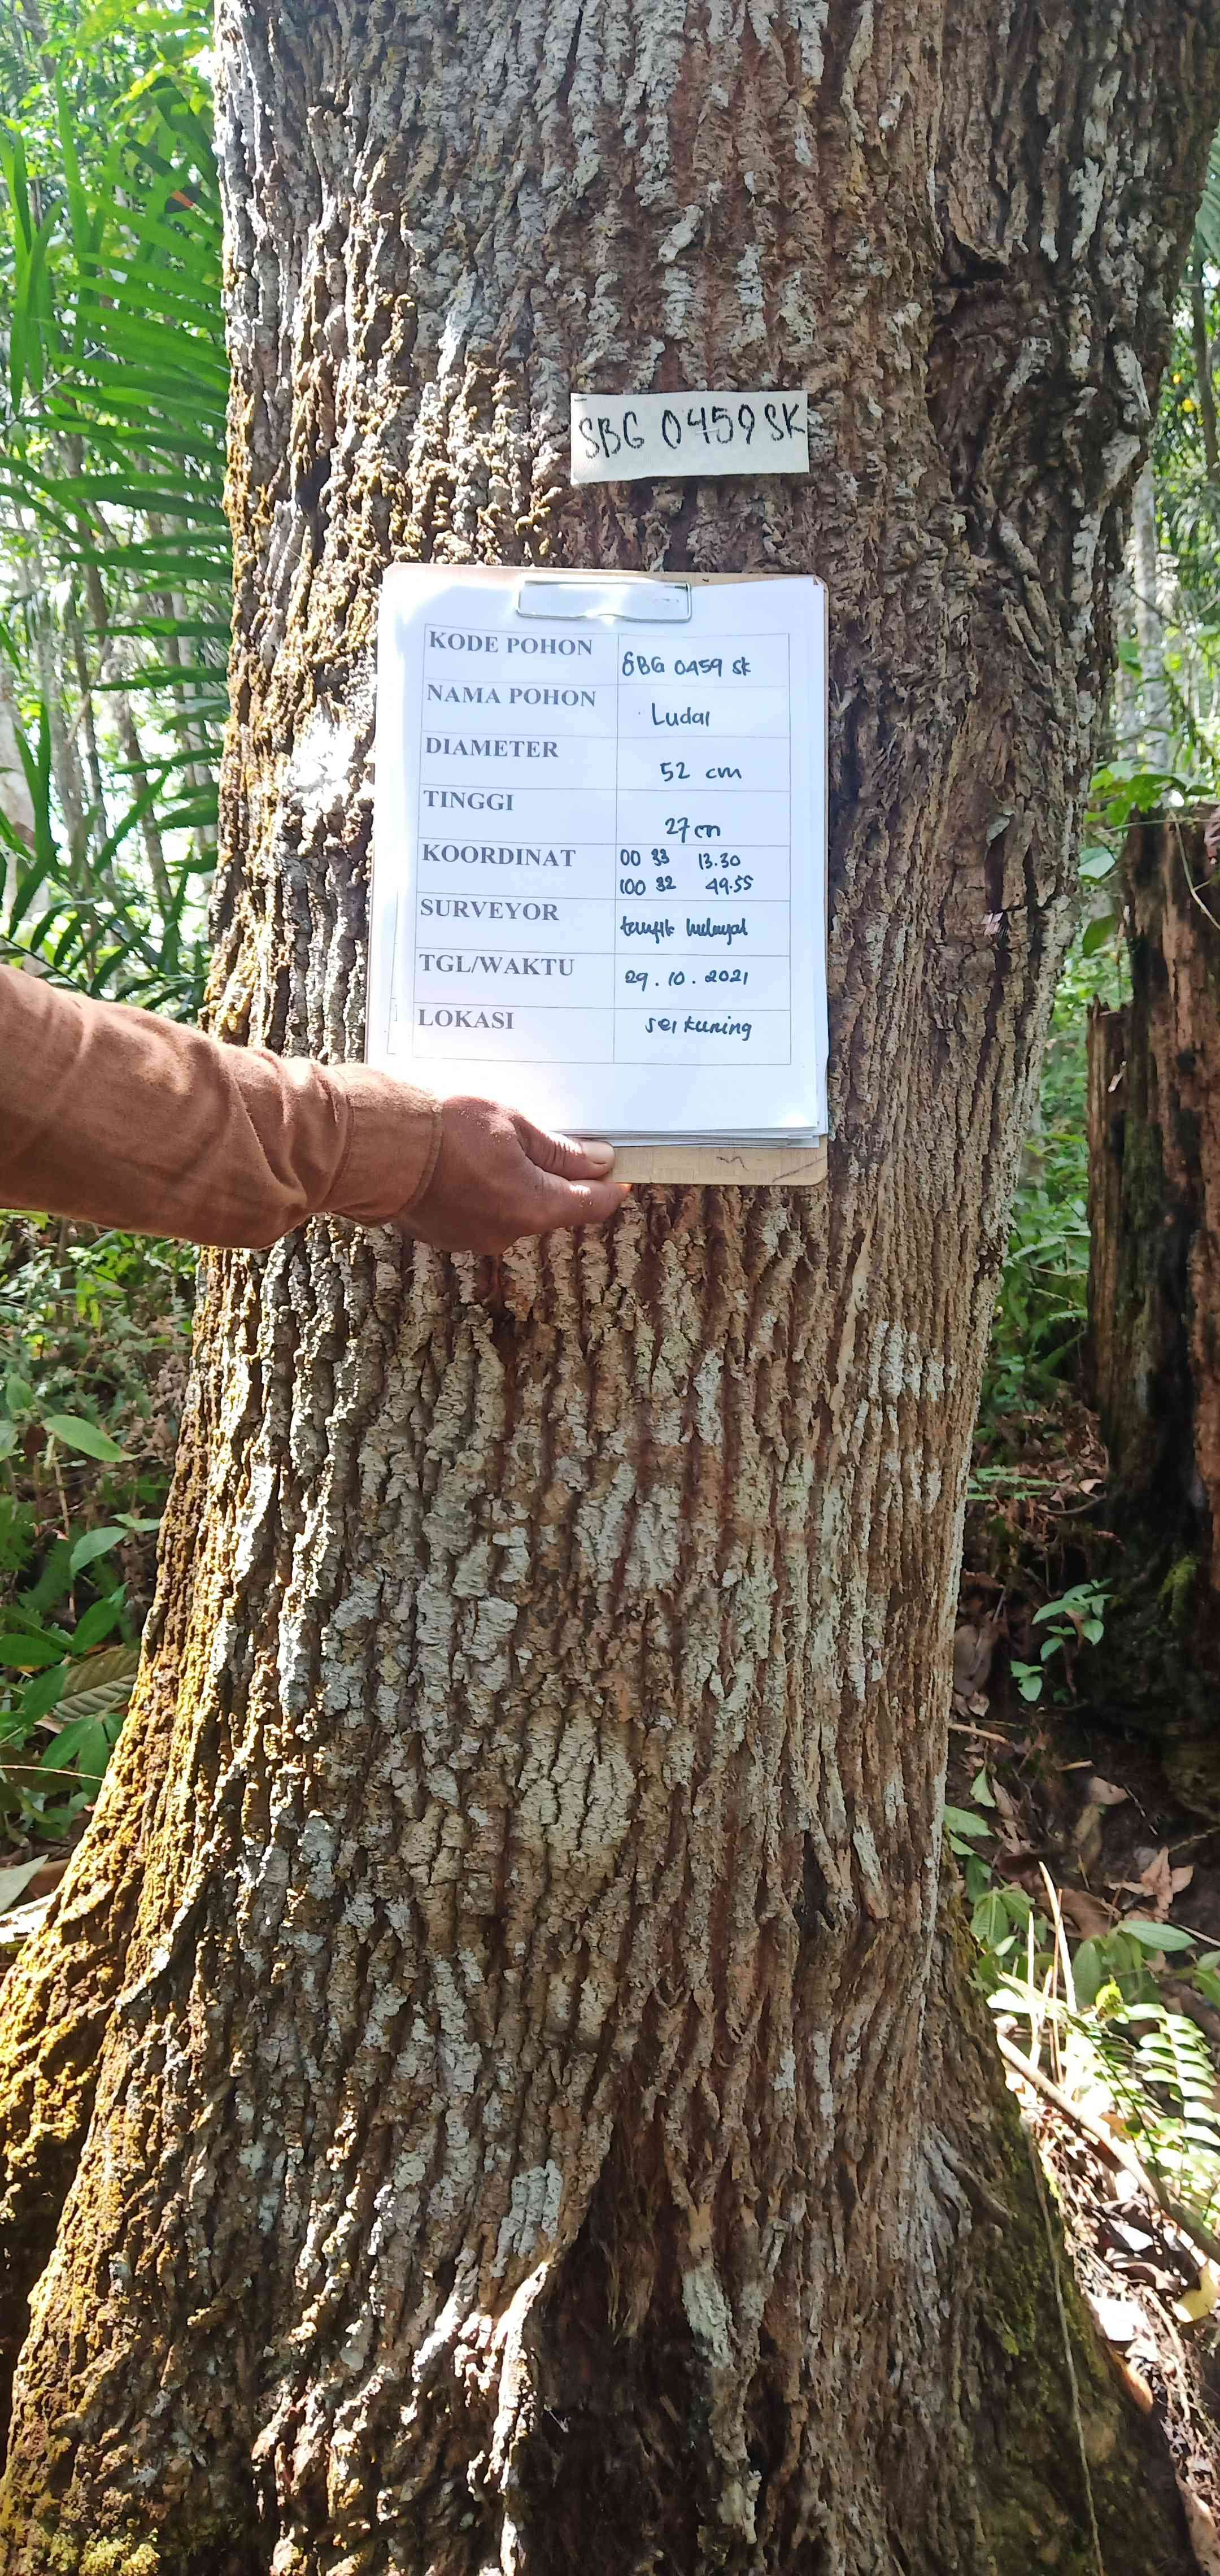 SBG 0459 SK
KODE POHON SBG 0459 SK
NAMA POHON Ludai
DIAMETER 52 cm
TINGGI 27 cm
KOORDINAT 00 33 13.30
100 32 49.55
SURVEYOR taufik hidayat
TGL/WAKTU 29.10.2021
LOKASI sei kuning